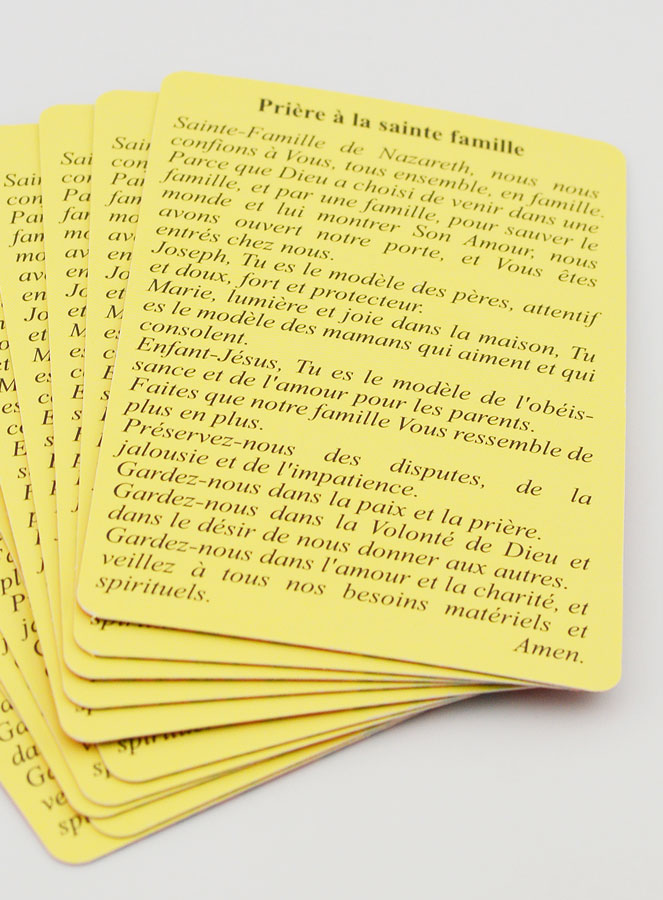 Prière à la sainte famille
Sainte-Famille de Nazareth, nous nous
confions à Vous, tous ensemble, en famille.
Parce que Dieu a choisi de venir dans une
famille, et par une famille, pour sauver le
monde et lui montrer Son Amour, nous
avons ouvert notre porte, et Vous êtes
entrés chez nous.
Joseph, Tu es le modèle des pères, attentif
et doux, fort et protecteur.
Marie, lumière et joie dans la maison, Tu
es le modèle des mamans qui aiment et qui
consolent.
Enfant-Jésus, Tu es le modèle de l'obéis-
sance et de l'amour pour les parents.
Faites que notre famille Vous ressemble de
plus en plus.
Préservez-nous des disputes, de la
jalousie et de l'impatience.
Gardez-nous dans la paix et la prière.
Gardez-nous dans la Volonté de Dieu et
dans le désir de nous donner aux autres.
Gardez-nous dans l'amour et la charité, et
veillez à tous nos besoins matériels et
spirituels.
Amen.